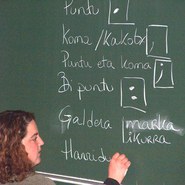 Puntu .
Koma / Kakotx ,
Puntu eta koma ;
Bi puntu :
Galdera marka
ikurra
Harridu